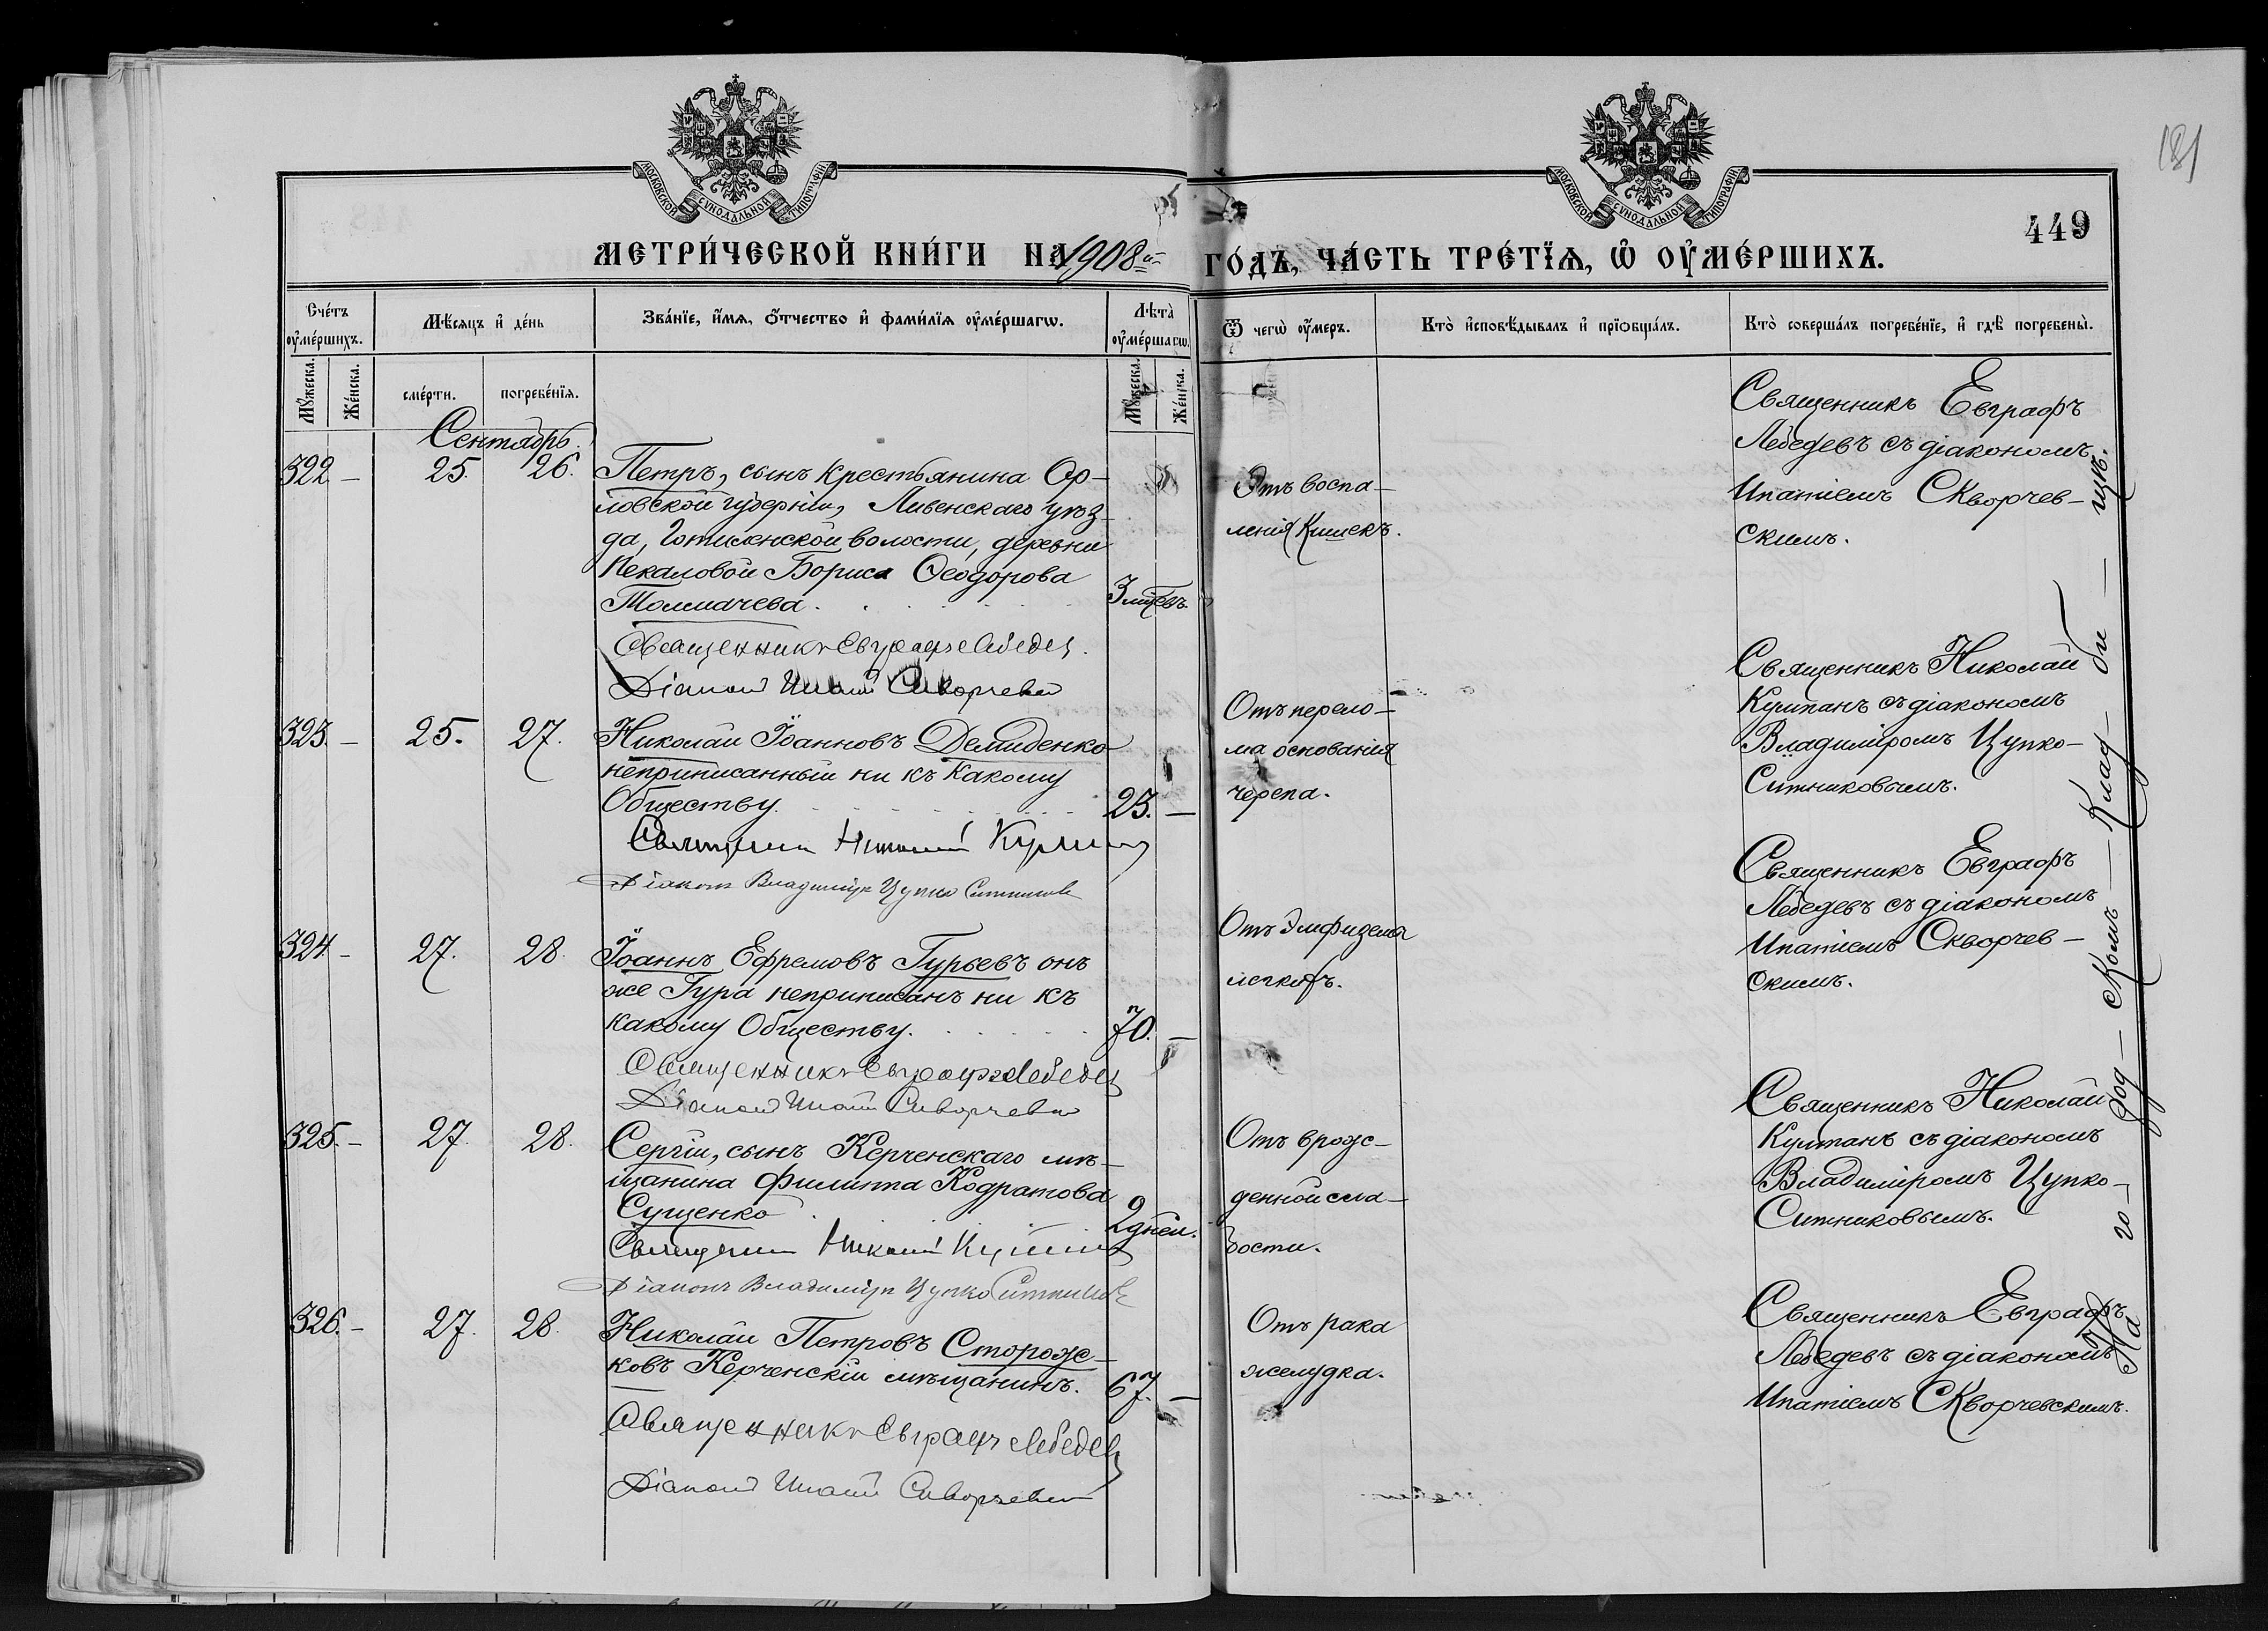 181
449
МОСКОВСКОЙ СѴНОДАЛЬНОЙ ТИПОГРАФІИ
МОСКОВСКОЙ СѴНОДАЛЬНОЙ ТИПОГРАФІИ
МЕТРИ́ЧЕСКОЙ КНИ́ГИ НА 1908й ГО́ДЪ, ЧА́СТЬ ТРЕ́ТЇѦ, Ѿ ОУ҆МЕ́РШИХЪ.
Сче́тъ оу҆ме́ршихъ.
Мѣ́сяцъ и҆ де́нь
Зва́нїе, и҆́мя, ѻ҆́тчество и҆ фами́лїя оу҆ме́ршагѡ.
Лѣта̀ оу҆ме́ршагѡ.
Ѿ чегѡ̀ оу҆́меръ.
Кто̀ и҆сповѣ́дывалъ и҆ прїѡбща́лъ.
Кто̀ соверша́лъ погребе́нїе, и҆ гдѣ̀ погребены̀.
Мꙋ́жеска.
Же́нска.
сме́рти.
погребе́нїя.
Мꙋ́жеска.
Же́нска.
Сентябрь.
322 –
25.
26.
Петръ, сынъ крестьянина Ор-
ловской губерніи, Ливенскаго уѣз-
да, волости, деревни
Бориса Ѳеодорова
Толмачева.
3 мѣ
Священникъ Евграфъ Лебедев
Діакон Ипатій Скворчевс
Отъ воспа-
ленія Кишекъ.
Священникъ Евграфъ
Лебедевъ съ діакономъ
Ипатіемъ Скворчев-
скимъ.
323. –
25.
27.
Николай Іоанновъ Демиденко
неприписанный ни къ Какому
Обществу.
23. –
Священник Николай
Діаконъ Владиміръ Цупко Ситников
Отъ перело-
ма основанія
черепа.
Священникъ Николай
съ діакономъ
Владиміромъ Цупко-
Ситниковымъ.
324 –
27.
28.
Іоаннъ Ефремовъ Гурьевъ онъ
же Гура неприписанъ ни къ
какому Обществу.
70. –
Священникъ Евграфъ Лебедев
Діакон Ипатій Скворчевс
Отъ Эмфизема
легкихъ.
Священникъ Евграфъ
Лебедевъ съ діакономъ
Ипатіемъ Скворчев-
скимъ.
325. –
27.
28.
Сергій, сынъ Керченскаго мѣ-
щанина Филиппа Кодратова
Сущенко
2 дней.
Священник Николай
Діаконъ Владиміръ Цупко Ситников
Отъ врож-
денной сла-
бости.
Священникъ Николай
съ діакономъ
Владиміромъ Цупко-
Ситниковымъ.
326. –
27.
28.
Николай Петровъ Сторож-
ковъ Керченскій мѣщанинъ.
67. –
Священникъ Евграфъ Лебедев
Діакон Ипатій Скворчевс
Отъ рака
желудка.
Священникъ Евграфъ
Лебедевъ съ діакономъ
Ипатіемъ Скворчевскимъ.
На го – род – скомъ – Клад – би – щѣ.